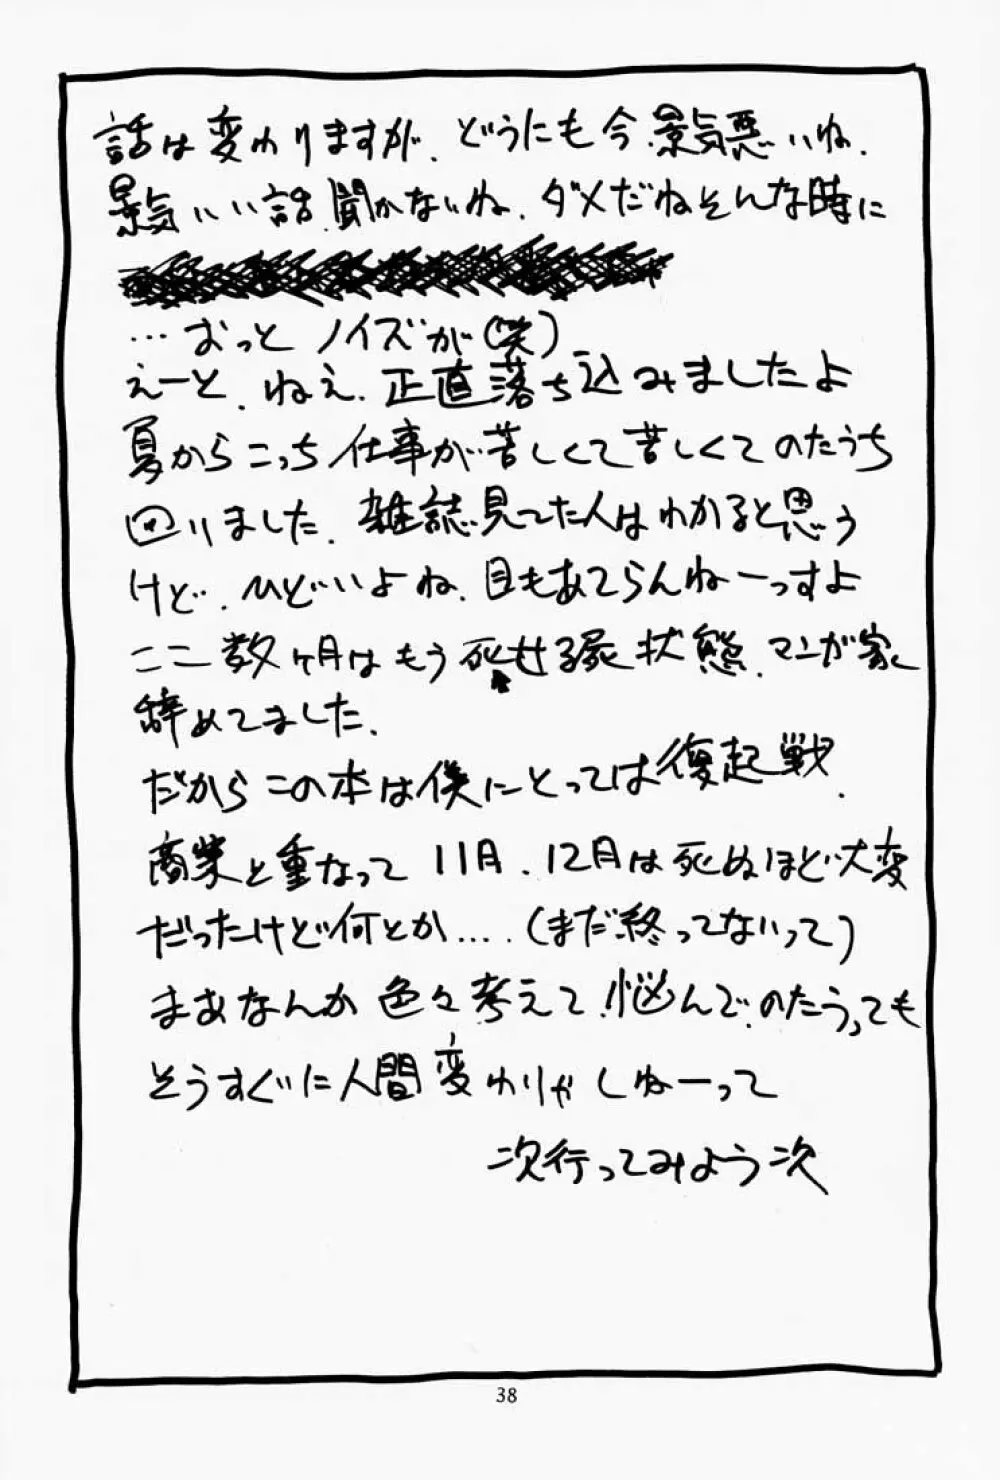 話は変わりますが、どうにも今、景気悪いね、
景気いい話、聞かないね、ダメだねそんな時に
…おっとノイズが(笑)
えーと、ねえ、正直落ち込みましたよ
夏からこっち仕事が苦しくて苦しくてのたうち
回りました、雑誌見てた人はわかると思う
けど、ひどいよね、目もあてらんねーっすよ
ここ数ヶ月はもう死せる屍状態、マンガ家
辞めてました、
だからこの本は僕にとっては復起戦、
商業と重なって11月、12月は死ぬほど大変
だったけど何とか…．(まだ終ってないって)
まあなんか色々考えて、悩んで、のたうっても
そうすぐに人間変わりゃしねーって
次行ってみよう次
38